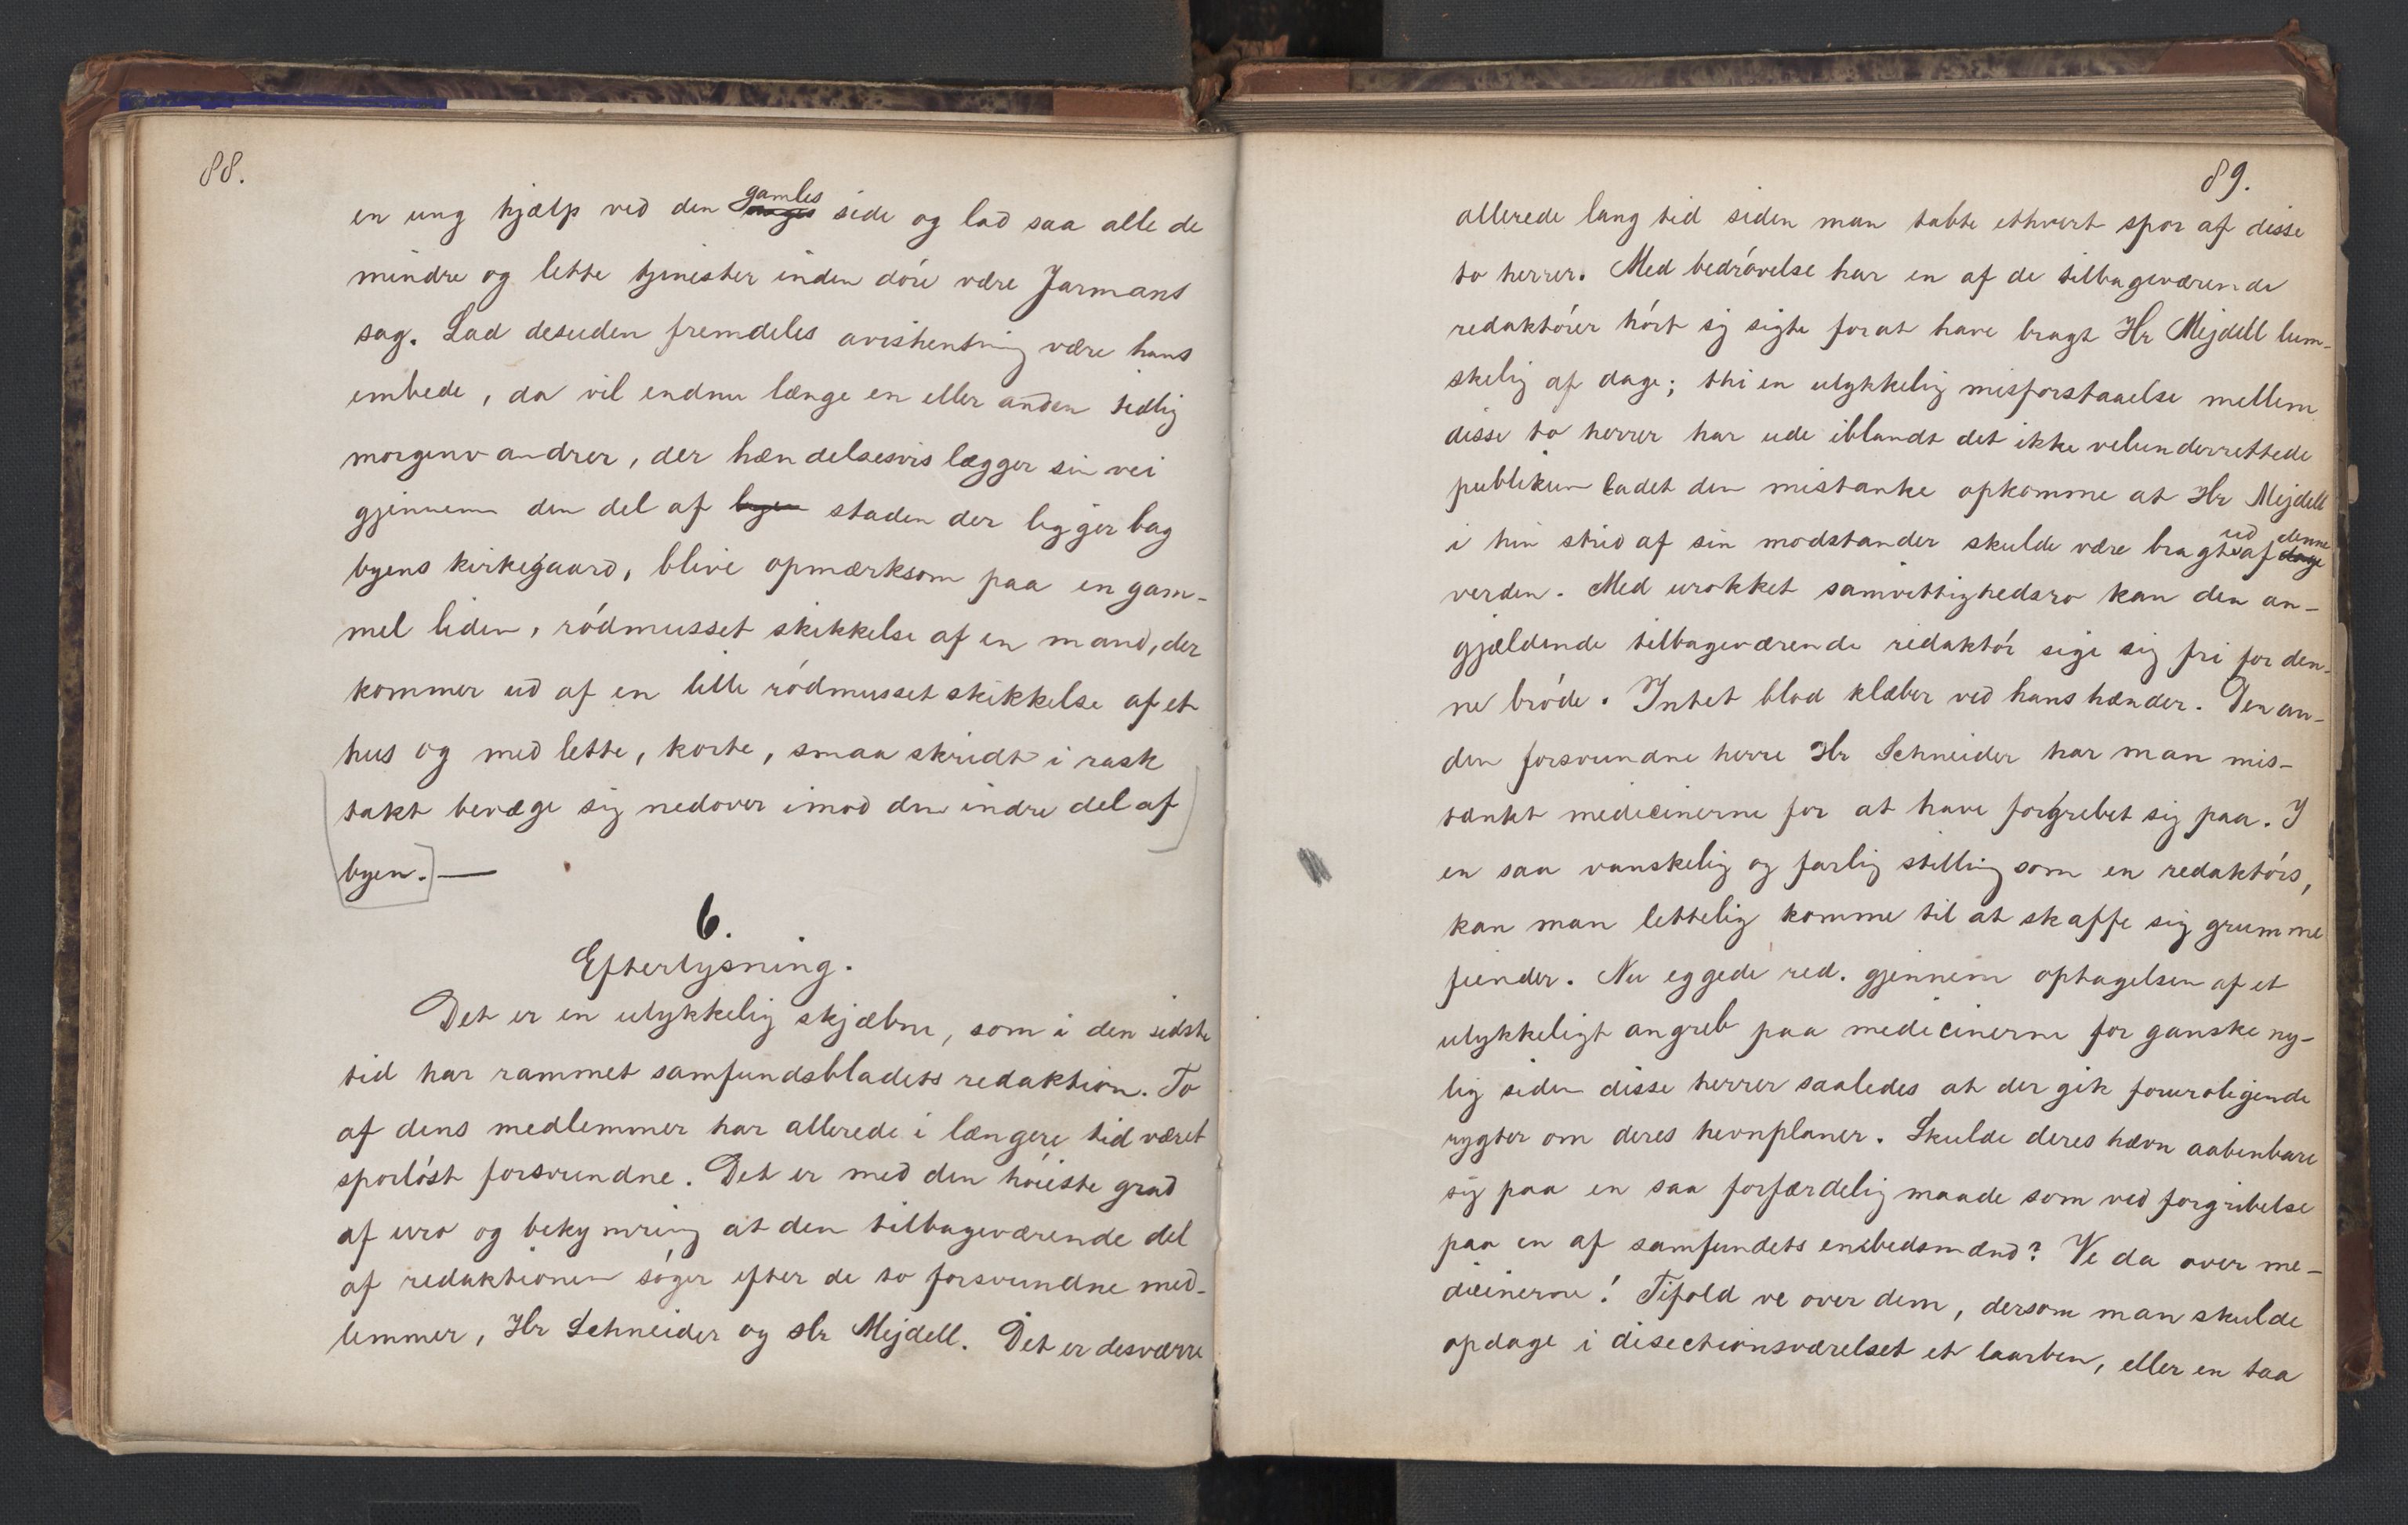 88.
en ung hjælp ved den gamles side og lad saa alle de
mindre og lette tjenester inden døre være Jarmans
sag. Lad desuden fremdeles avishentning være hans
embede, da vil endnu længe en eller anden tidlig
morgenvandrer, der hændelsesvis lægger sin vei
gjennem den del af byen staden der ligger bag
byens kirkegaard, blive opmærksom paa en gam-
mel liden, rødmusset skikkelse af en mand, der
kommer ud af en lille rødmusset skikkelse af et
hus og med lette, korte, smaa skridt i rask
takt bevæge sig nedover imod den indre del af
byen. —
6.
Efterlysning.
Det er en ulykkelig skjæbne, som i den sidste
tid har rammet samfundsbladets redaktion. To
af dens medlemmer har allerede i længere tid været
sporløst forsvundne. Det er med den høieste grad
af uro og bekymring at den tilbageværende del
af redaktionen søger efter de to forsvundne med-
lemmer, Hr Schneider og Hr Mejdell. Det er desværre
89.
allerede lang tid siden man tabte ethvert spor af disse
to herrer. Med bedrøvelse har en af de tilbageværende
redaktører hørt sig sigte for at have bragt Hr Mejdell lum-
skelig af dage; thi en ulykkelig misforstaaelse mellem
disse to herrer har ude iblandt det ikke velunderrettede
publikum ladet den mistanke opkomme at Hr Mejdell
i hin strid af sin modstander skulde være bragt ud af dage denne
verden. Med urokket samvittighedsro kan den an-
gjældende tilbageværende redaktør sige sig fri for den-
ne brøde. Intet blod klæber ved hans hænder. Den an-
den forsvundne herre Hr Schneider har man mis-
tænkt medicinerne for at have forgrebet sig paa. I
en saa vanskelig og farlig stilling som en redaktørs,
kan man lettelig komme til at skaffe sig grumme
fiender. Nu eggede red. gjennem optagelsen af et
ulykkeligt angreb paa medicinerne for ganske ny-
lig siden disse herrer saaledes at der gik foruroligende
rygter om deres hevnplaner. Skulde deres hævn aabenbare
sig paa en saa forfærdelig maade som ved forgribelse
paa en af samfundets embedsmænd? Ve da over me-
dicinerne! Tifold ve over dem, dersom man skulde
opdage i disectionsværelset et laarben, eller en taa